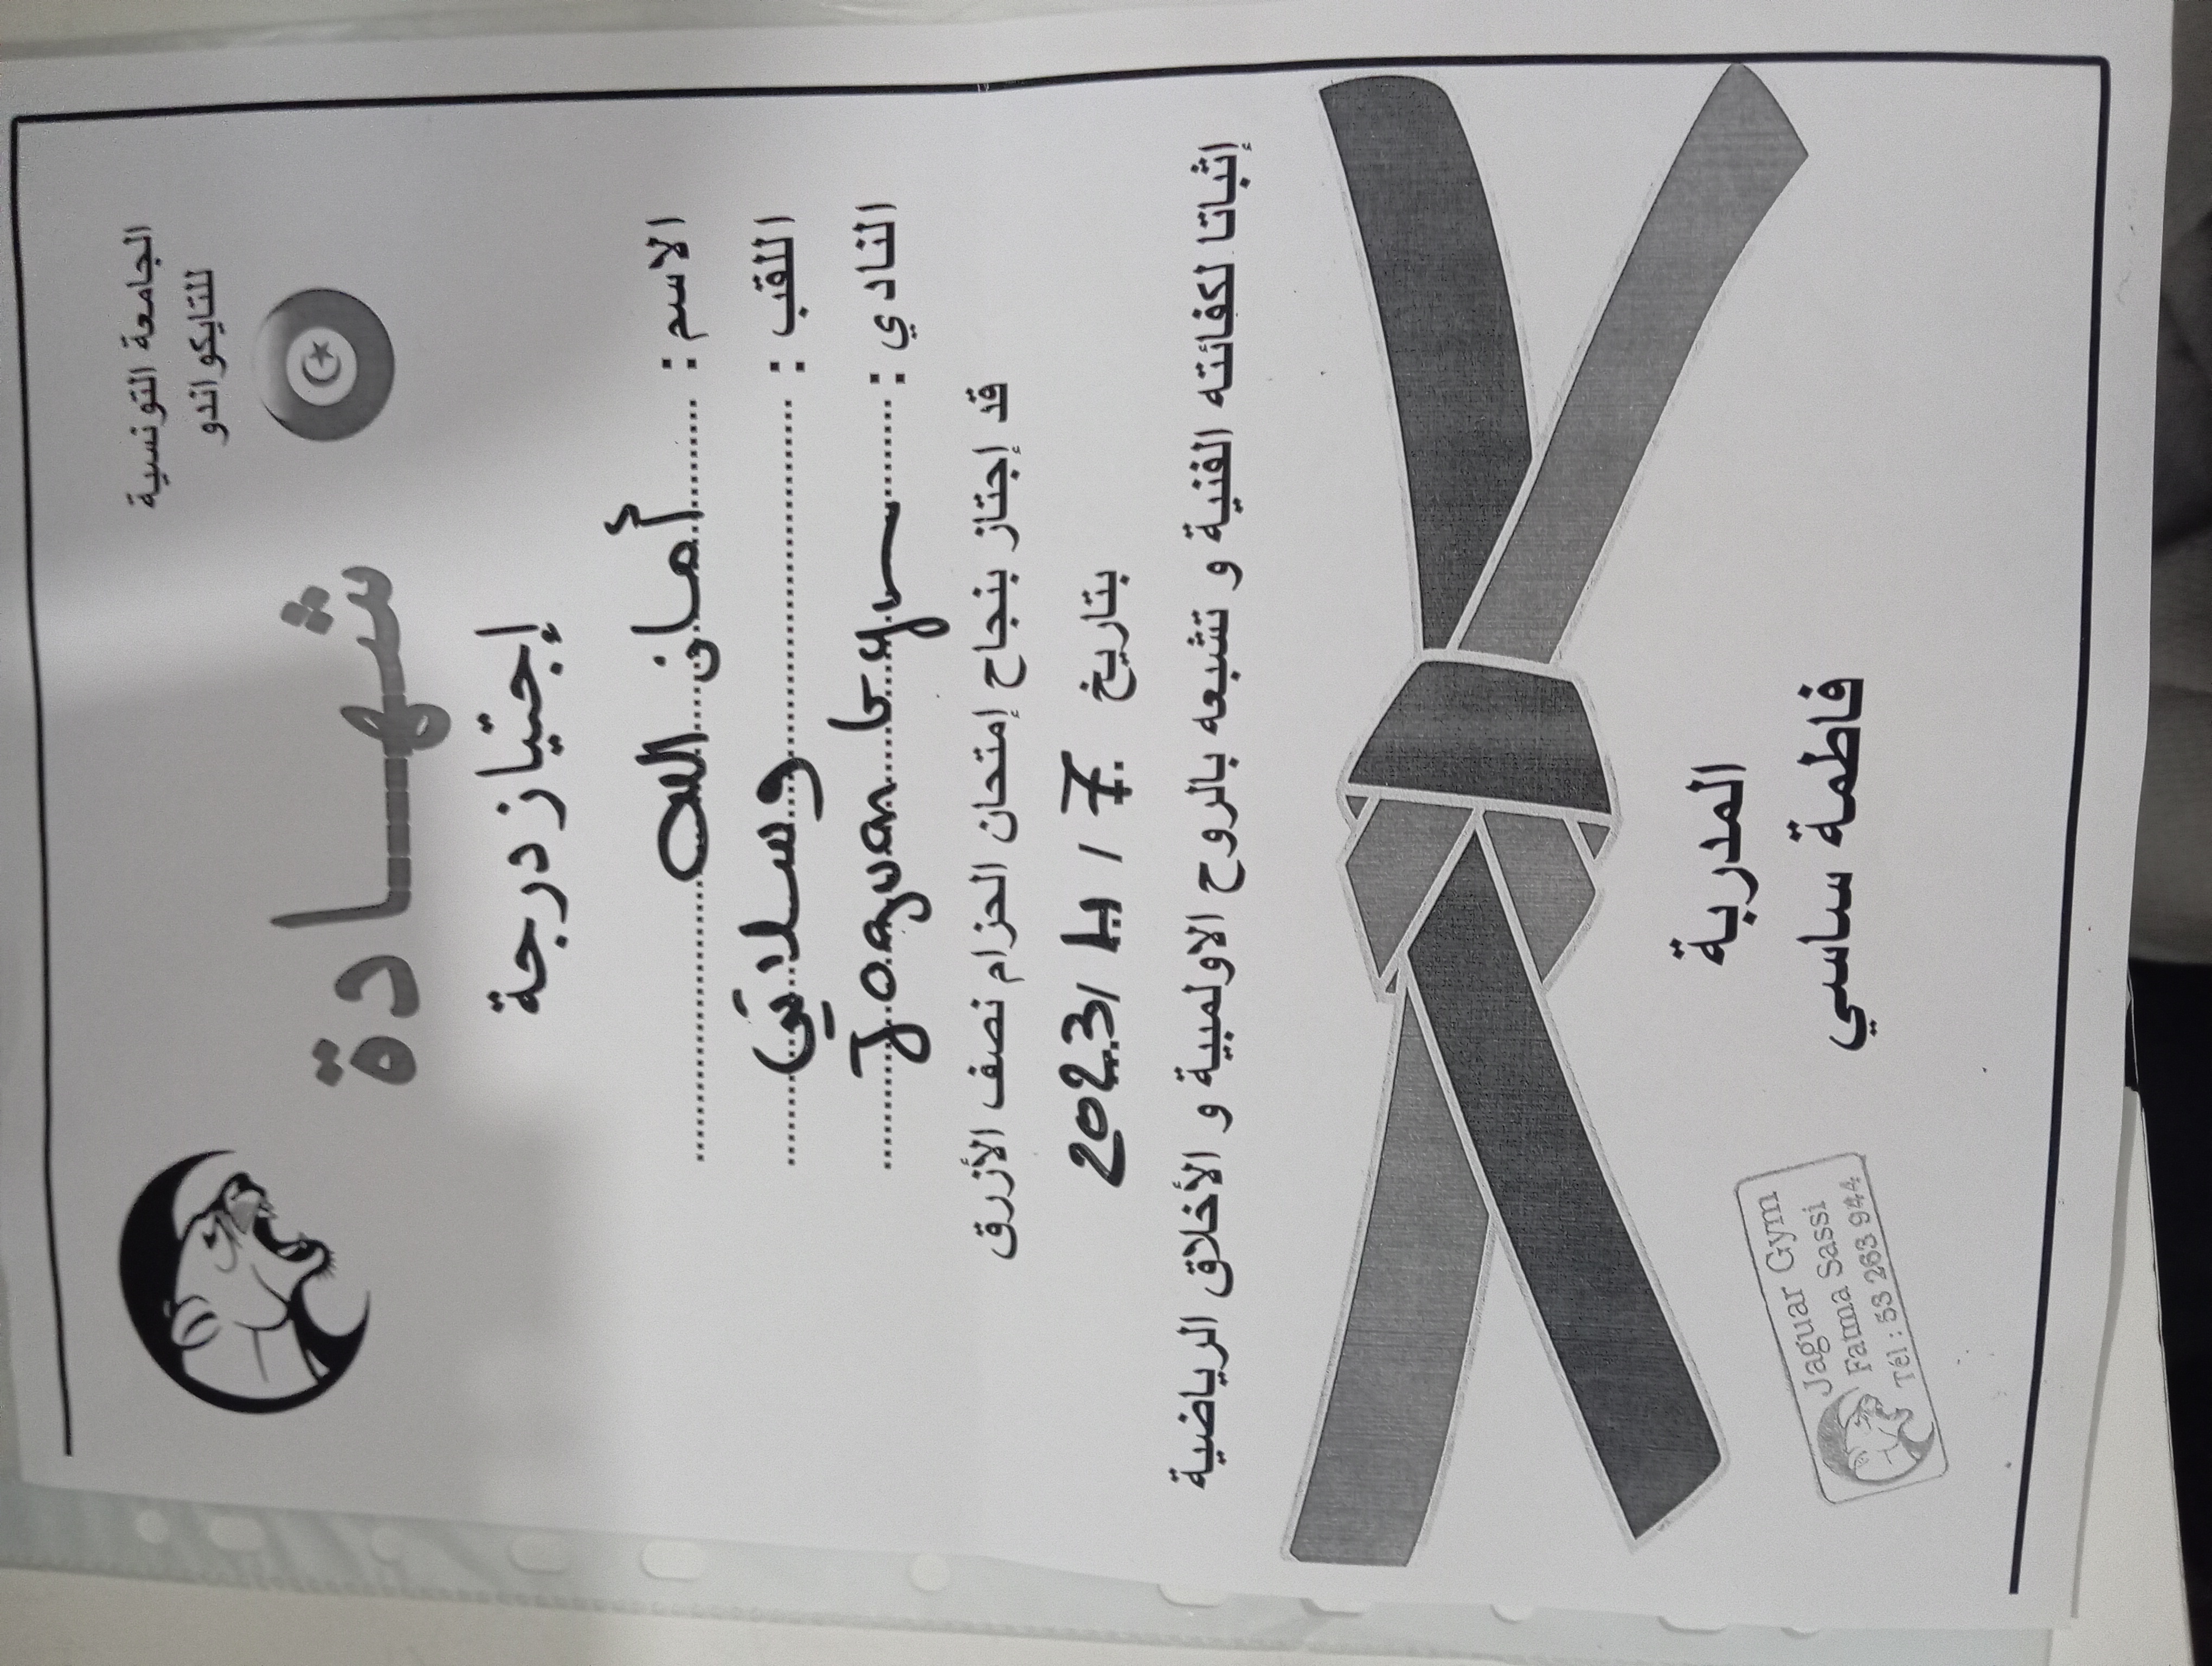 الجامعة التونسية
للتايكواندو
شهــادة
إجتياز درجة
الاسم : أمان الله
اللقب : وسلاتي
النادي : Jaguar Gym
قد إجتاز بنجاح إمتحان الحزام نصف الأزرق
بتاريخ 7 / 11 / 2023
إثباتا لكفائته الفنية و تشبعه بالروح الاولمبية و الأخلاق الرياضية
المدربة
فاطمة ساسي
Jaguar Gym
Fatma Sassi
Tél : 53 263 944